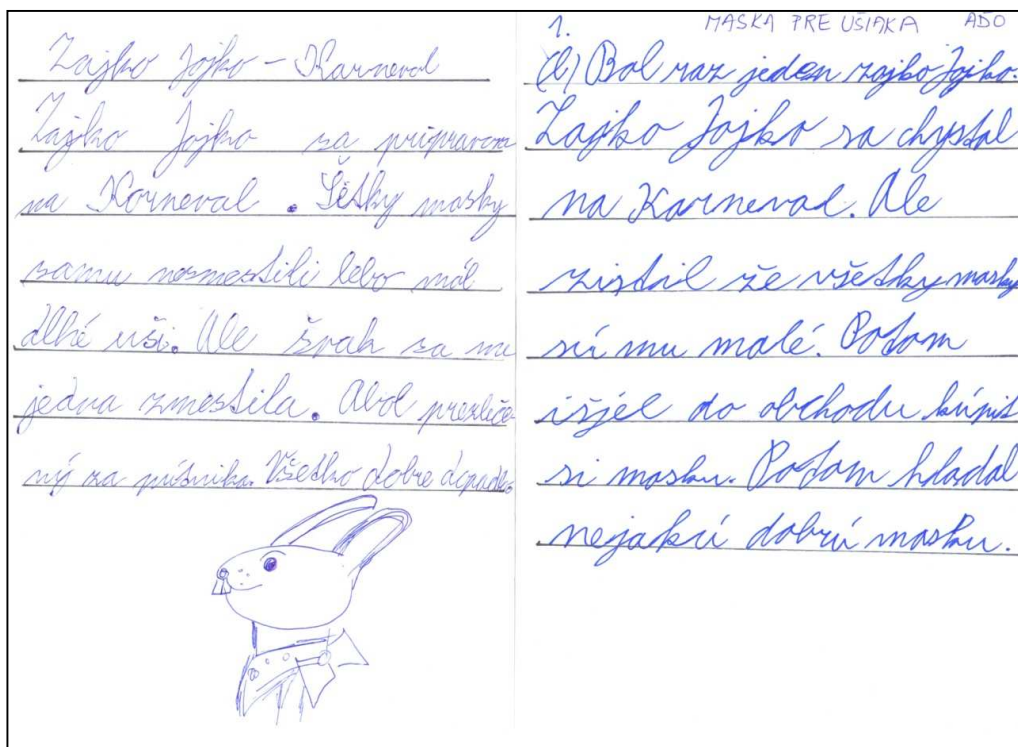 Zajko Jojko - Karneval
Zajko Jojko sa pripravova
na Karneval . Šetky masky
samu nesmestili lebo mál
dlhé uši. Ale švak sa mu
jedna zmestila. Abol prezleče
ný za pútnika. Všetko dobre dopadlo
1. MASKA PRE UŠIAKA ADO
Bol raz jeden zajko Jojko.
Zajko Jojko sa chystal
na Karneval. Ale
zistil že všetky masky
sú mu malé. Potom
išjel do obchodu kúpit
si masku. Potom hladal
nejakú dobrú masku.